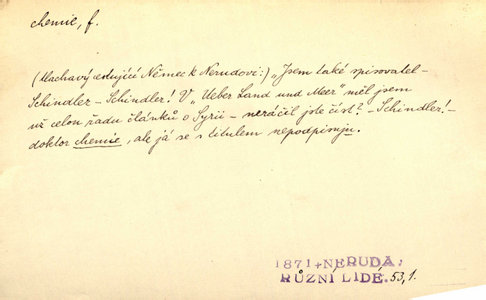 chemie, f.
(tlachavý cestující Němec k Nerudovi:) „Jsem také spisovatel –
Schindler – Schindler! V „Ueber Land und Meer" měl jsem
už celou řadu článků o Syrii – neráčil jste číst? – Schindler! –
doktor chemie, ale já se s titulem nepodpisuju.
1871 + NERUDA,
RŮZNÍ LIDÉ. 53,1.